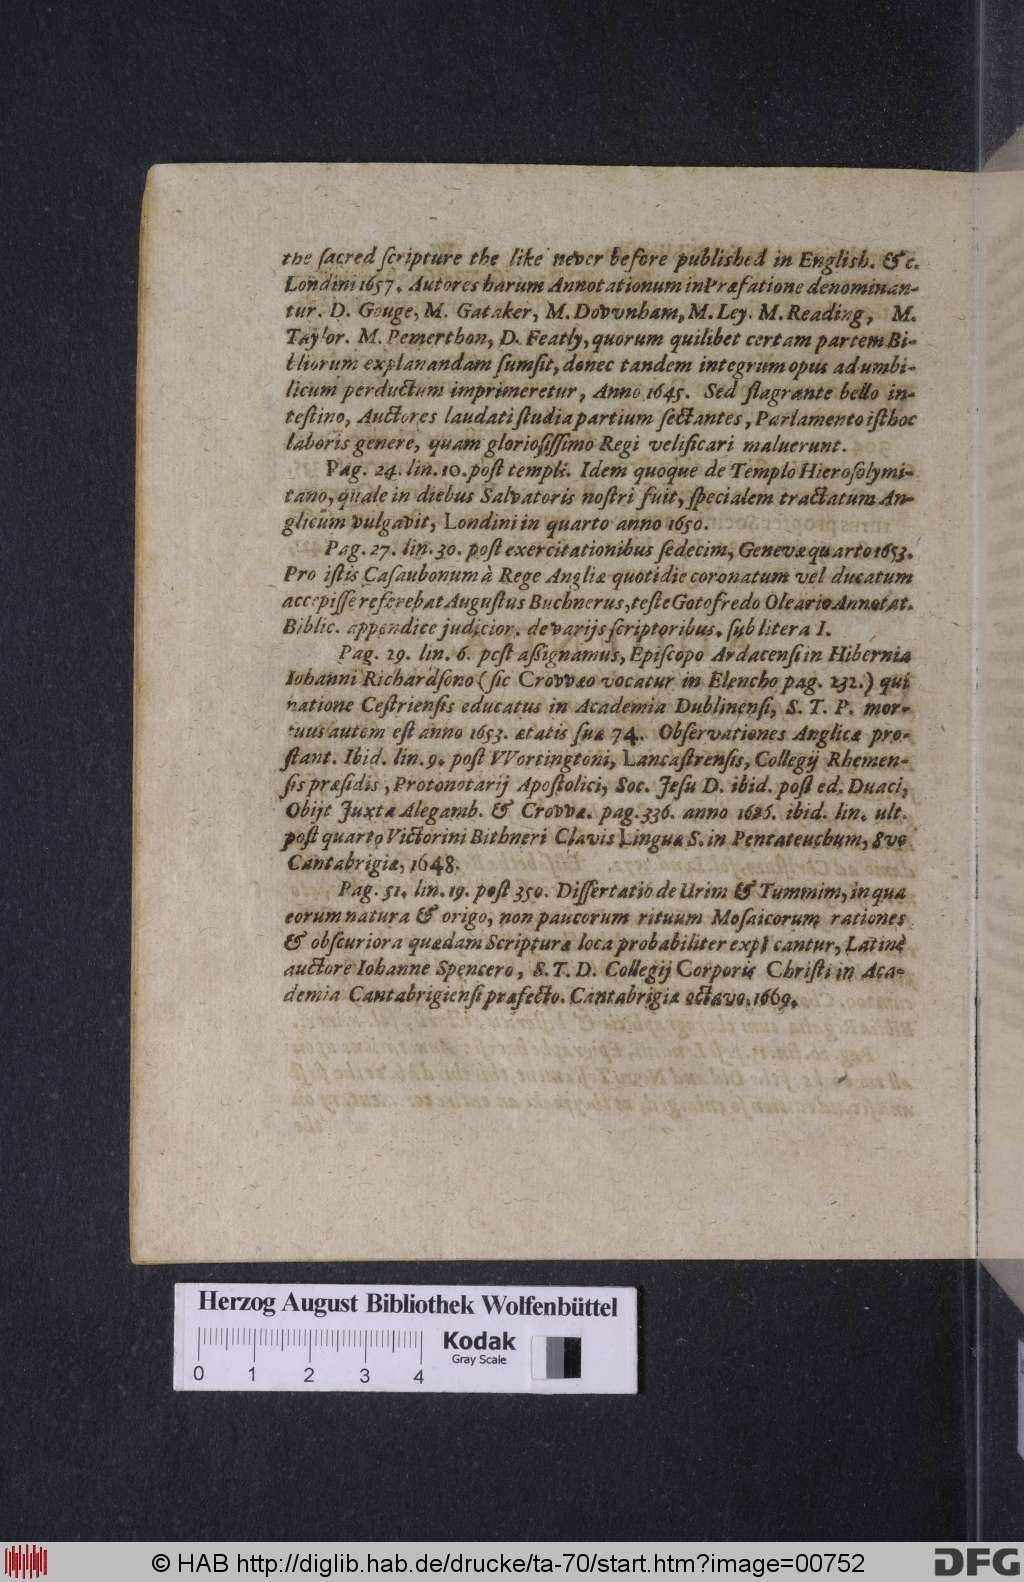 the ſacred ſcripture the like never before publiſhed in Engliſh. & c.
Londini 1657. Autores harum Annotationum in Præfatione denominan-
tur. D. Gouge, M. Gataker, M. Dovvnham, M. Ley. M. Reading, M.
Taylor. M. Pemerthon, D. Featly, quorum quilibet certam partem Bi-
bliorum explanandam ſumſit, donec tandem integrum opus ad umbi-
licum perductum imprimeretur, Anno 1645. Sed flagrante bello in-
teſtino, Auctores laudati ſtudia partium ſectantes, Parlamento iſthoc
laboris genere, quam glorioſiſſimo Regi velificari maluerunt.
Pag. 24. lin. 10. poſt templi. Idem quoque de Templo Hieroſolymi-
tano, quale in diebus Salvatoris noſtri fuit, ſpecialem tractatum An-
glicum vulgavit, Londini in quarto anno 1650.
Pag. 27. lin. 30. poſt exercitationibus ſedecim, Genevæ quarto 1653.
Pro iſtis Caſaubonum à Rege Angliæ quotidie coronatum vel ducatum
accepiſſe referebat Auguſtus Buchnerus, teſte Gotofredo Oleario Annotat.
Biblic. appendice judicior. de varijs ſcriptoribus. ſub litera I.
Pag. 29. lin. 6. poſt aſſignamus, Epiſcopo Ardacenſi in Hibernia
Iohanni Richardſono (ſic Crovvæo vocatur in Elencho pag. 232.) qui
natione Ceſtrienſis educatus in Academia Dublinenſi, S. T. P. mor-
tuus autem eſt anno 1653. ætatis ſuæ 74. Obſervationes Anglicæ pro-
ſtant. Ibid. lin. 9. poſt VVortingtoni, Lancaſtrenſis, Collegij Rhemen-
ſis præſidis, Protonotarij Apoſtolici, Soc. Jeſu D. ibid. poſt ed. Duaci,
Obijt Juxta Alegamb. & Crovvæ. pag. 336. anno 1626. ibid. lin. ult.
poſt quarto Victorini Bithneri Clavis Linguæ S. in Pentateuchum, 8vo
Cantabrigiæ, 1648.
Pag. 51. lin. 19. poſt 350. Diſſertatio de Urim & Tummim, in qua
eorum natura & origo, non paucorum rituum Moſaicorum rationes
& obſcuriora quædam Scripturæ loca probabiliter expl cantur, Latinè
auctore Iohanne Spencero, S. T. D. Collegij Corporis Chriſti in Aca-
demia Cantabrigienſi præfecto. Cantabrigiæ octavo. 1669.
Herzog August Bibliothek Wolfenbüttel
Kodak
Gray Scale
0 1 2 3 4
© HAB http://diglib.hab.de/drucke/ta-70/start.htm?image=00752
DFG